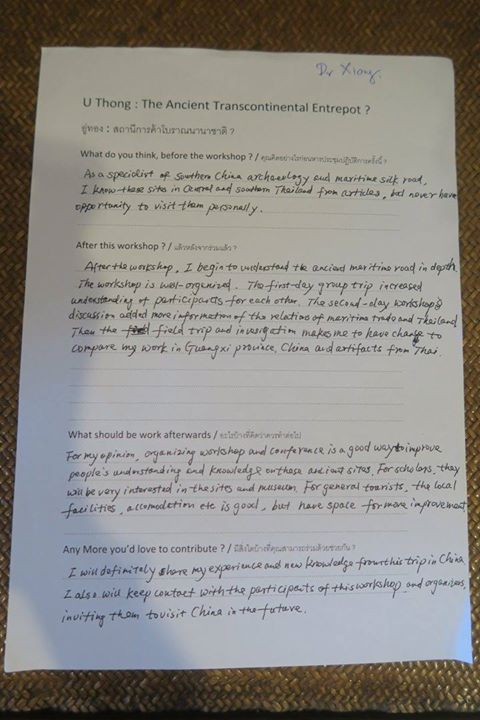 Dr Xiong.
U Thong : The Ancient Transcontinental Entrepot ?
อู่ทอง : สถานีการค้าโบราณนานาชาติ ?
What do you think, before the workshop ? / คุณคิดอย่างไรก่อนการประชุมปฏิบัติการครั้งนี้ ?
As a specialist of southern China archaeology and maritime silk road,
I know these sites in Central and southern Thailand from articles, but never have
opportunity to visit them personally.
After this workshop ? / แล้วหลังจากร่วมแล้ว ?
After the workshop, I begin to understand the ancient maritime road in depth.
The workshop is well-organized. The first-day group trip increased
understanding of participants for each other. The second-day workshop's
discussion added more information of the relation of maritime trade and Thailand
Then the field trip and invesigation makes me to have chance to
compare my work in Guangxi province, China and artifacts from Thai.
What should be work afterwards / อะไรบ้างที่คิดว่าควรทำต่อไป
For my opinion, organizing workshop and conference is a good way to improve
people's understanding and knowledge on those ancient sites. For scholars, they
will be very interested in the sites and museum. For general tourists, the local
facilities, accomodation etc is good, but have space for more improvement
Any More you'd love to contribute ? / มีสิ่งใดบ้างที่คุณสามารถร่วมด้วยช่วยกัน ?
I will definitely share my experience and new knowledge from this trip in China.
I also will keep contact with the participants of this workshop and organizers,
inviting them to visit China in the future.